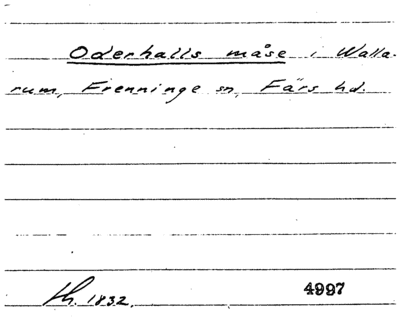 Oderhalls måse i Walla-
rum, Frenninge sn, Färs hd.
Lh. 1832.
4997